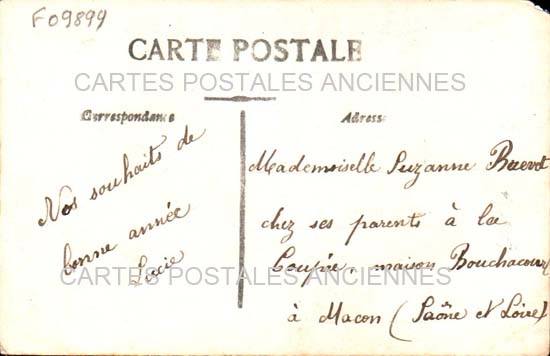 F09899
CARTE POSTALE
CARTES POSTALES ANCIENNES
Correspondance
Adresse
Nos souhaits de
bonne année
Lucie
Mademoiselle Suzanne
chez ses parents à la
Coupée, maison Bouchacourt
à Macon (Saône et Loire)
CARTES POSTALES ANCIENNES